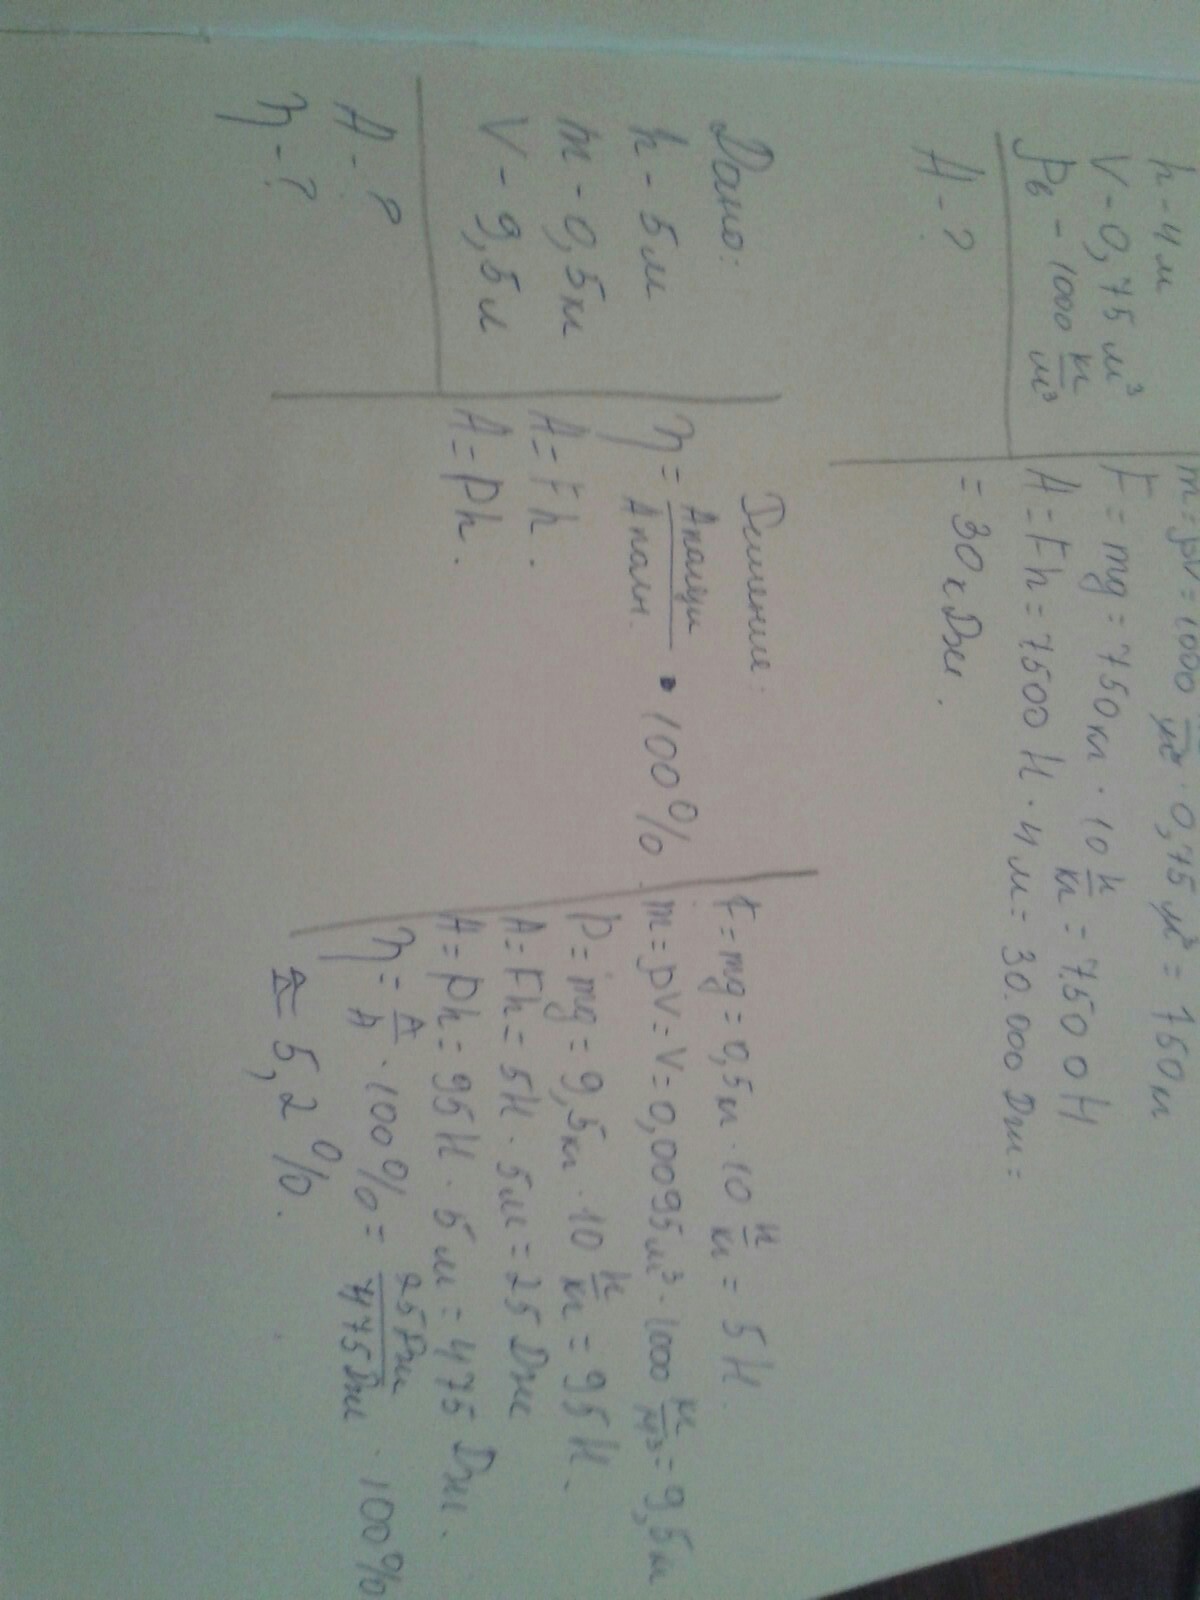 h - 4 м
V - 0,75 м³
ρв - 1000 кг/м³
A - ?
m = ρV = 1000 кг/м³ · 0,75 м³ = 750 кг
F = mg = 750 кг · 10 Н/кг = 7500 Н
A = Fh = 7500 Н · 4 м = 30.000 Дж =
= 30 кДж.
Дано:
h - 5 м
m - 0,5 кг
V - 9,5 л
A - ?
η - ?
Решение:
η = Aполезн / Aполн. · 100%
A = Fh.
A = Ph.
F = mg = 0,5 кг · 10 Н/кг = 5 Н.
m = ρV = V = 0,0095 м³ · 1000 кг/м³ = 9,5 кг
P = mg = 9,5 кг · 10 Н/кг = 95 Н.
A = Fh = 5 Н · 5 м = 25 Дж
A = Ph = 95 Н · 5 м = 475 Дж.
η = A/A · 100% = 25 Дж / 475 Дж · 100%
= 5,2 %.